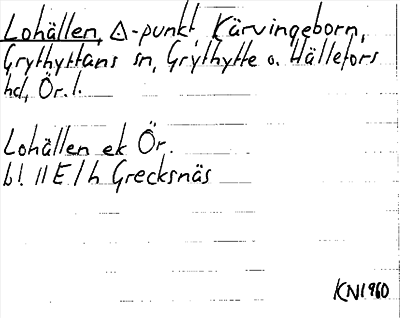 Lohällen, △-punkt, Kärvingeborn,
Grythyttans sn, Grythytte o. Hällefors
hd, Ör. l.
Lohällen ek Ör.
bl 11 E/h Grecksnäs
KN1960